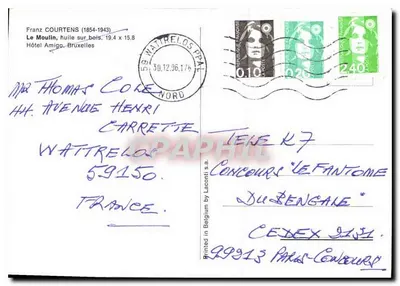 Franz COURTENS (1854-1943)
Le Moulin, huile sur bois. 19.4 x 15.8
Hôtel Amigo, Bruxelles
59 WATTRELOS PPAL
NORD
0,10
0,20
2,40
MR THOMAS COLE
44. AVENUE HENRI
CARRETTE
WATTRELOS
59150.
FRANCE.
Printed in Belgium by Laconti s.a.
TELE K7
CONCOURS "LE FANTOME
DU BENGALE"
CEDEX 2131
99213 PARIS-CONCOURS